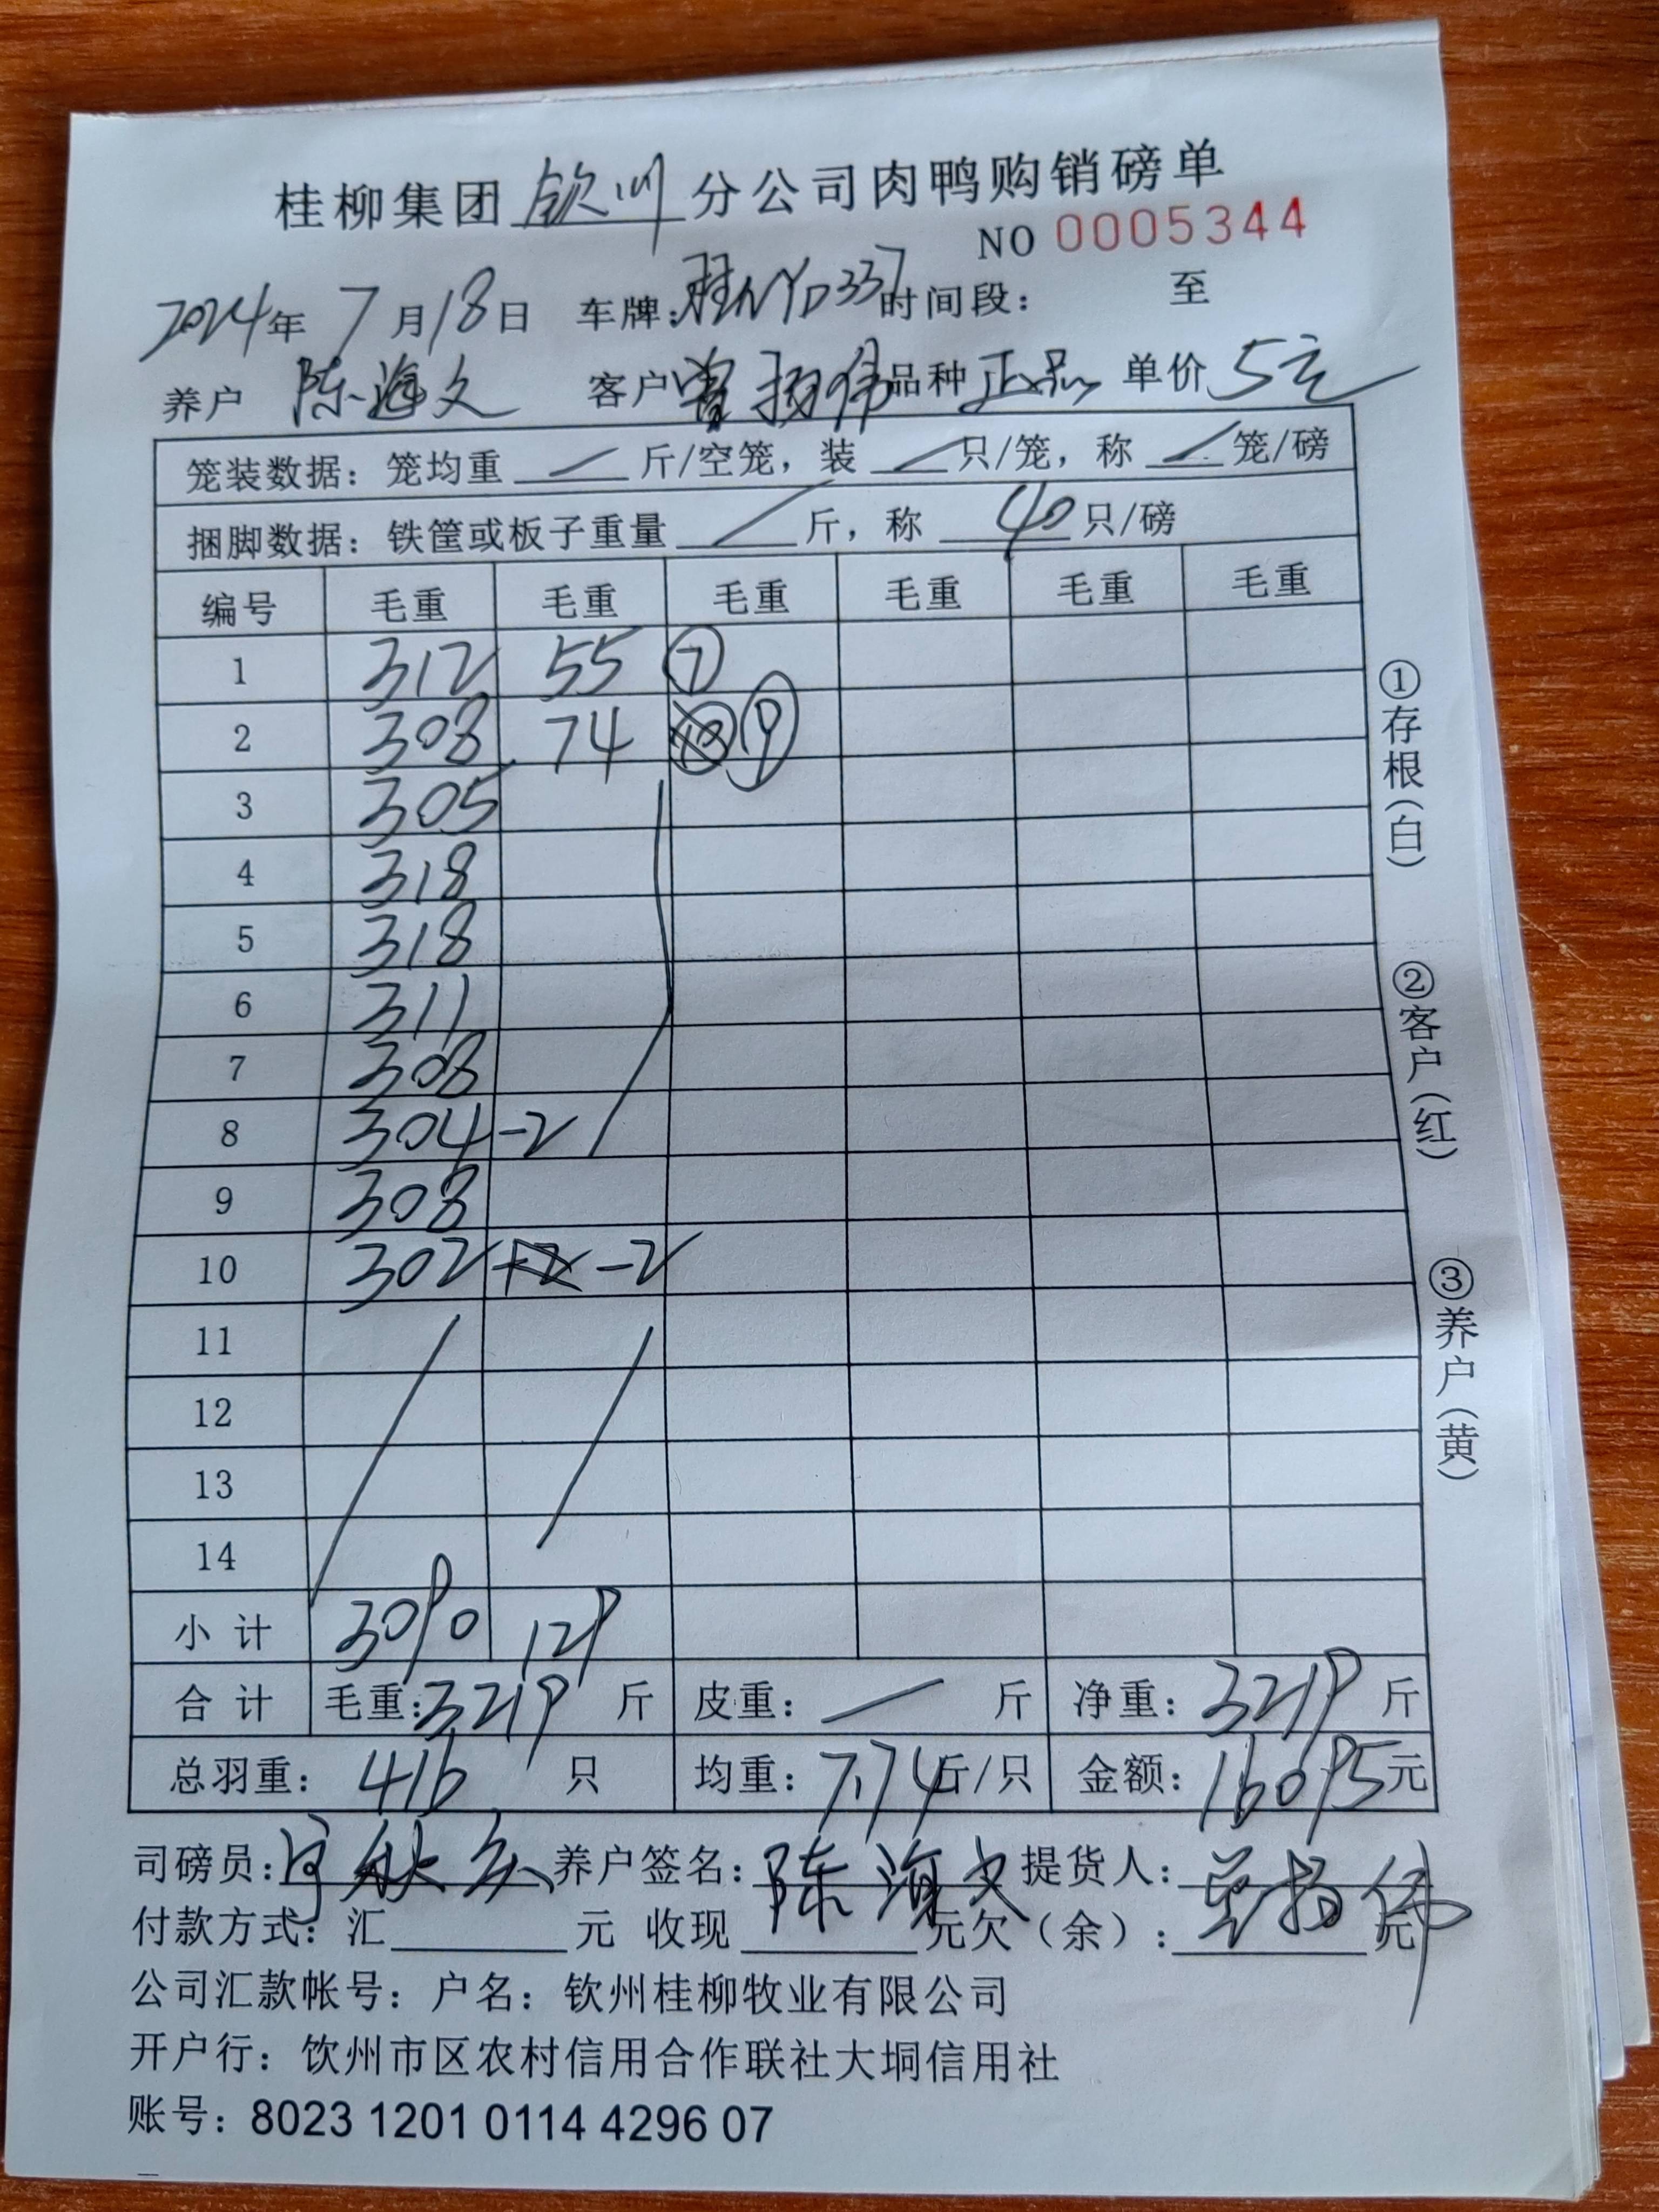 桂柳集团钦州分公司肉鸭购销磅单
NO 0005344
2024年 7月18日 车牌:桂NYD337 时间段: 至
养户 陈海文 客户 曾扬伟 品种 正品 单价 5元
笼装数据: 笼均重 / 斤/空笼, 装 / 只/笼, 称 / 笼/磅
捆脚数据: 铁筐或板子重量 / 斤, 称 40 只/磅
编号 毛重 毛重 毛重 毛重 毛重 毛重
1 312 55 ⑦
2 308 74 ⑨
3 305
4 318
5 318
6 311
7 308
8 304 -2
9 308
10 302 -2
11
12
13
14
小计 3090 129
合计 毛重:3219 斤 皮重: / 斤 净重: 3219 斤
总羽重: 416 只 均重: 7.74斤/只 金额: 16095元
司磅员: 养户签名: 陈海文 提货人:
付款方式: 汇 元 收现 元 欠(余): 元
公司汇款帐号: 户名: 钦州桂柳牧业有限公司
开户行: 钦州市区农村信用合作联社大垌信用社
账号: 8023 1201 0114 4296 07
①存根(白)
②客户(红)
③养户(黄)